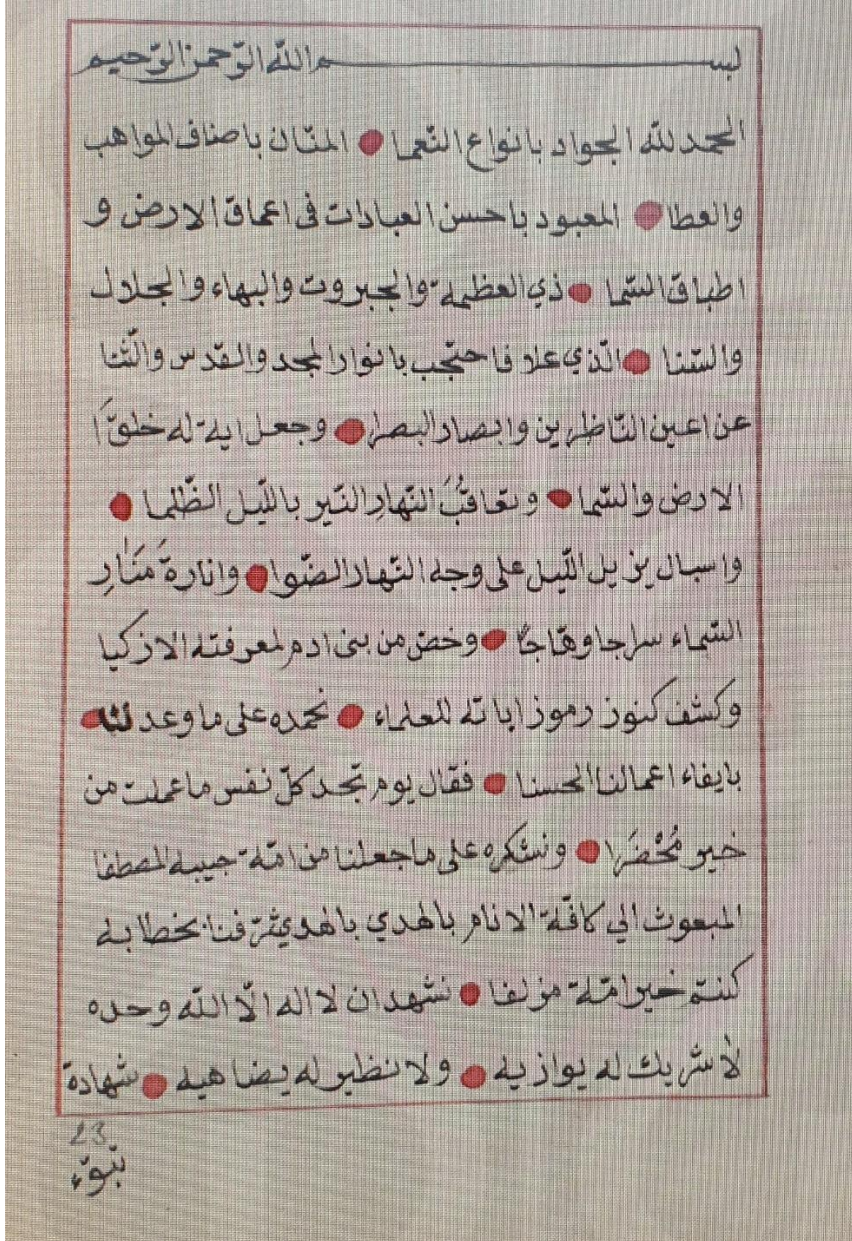 بسم الله الرّحمن الرّحيم
الحمد لله الجواد بانواع النّعما المنّان باصناف المواهب
والعطا المعبود باحسن العبادات فى اعماق الارض و
اطباق السّما ذي العظمة والجبروت والبهاء والجلال
والسّنا الّذي علا فاحتجب بانوار المجد والقدس والثّنا
عن اعين النّاظرين وابصار البصرا وجعل اية له خلق
الارض والسّما وتعاقُبُ النّهارِ النّير باللّيل الظّلما
واسبال يزيل اللّيل على وجه النّهار الضّوا وانارة مَنَارِ
السّماء سراجا وهّاجًا وخصّ من بنى ادم لمعرفته الازكيا
وكشف كنوز رموز اياته للعلماء نحمده على ما وعد لنا
بايفاء اعمالنا الحسنا فقال يوم تجد كلّ نفس ما عملت من
خير مُحْضَرا ونشكره على ما جعلنا من امّة حبيبه المصطفا
المبعوث الي كافّة الانام بالهدي بخطابه
كنتم خير امّة مؤلفا نشهد ان لا اله الّا الله وحده
لا شريك له يوازيه ولا نظير له يضاهيه شهادة
23
تبّوء